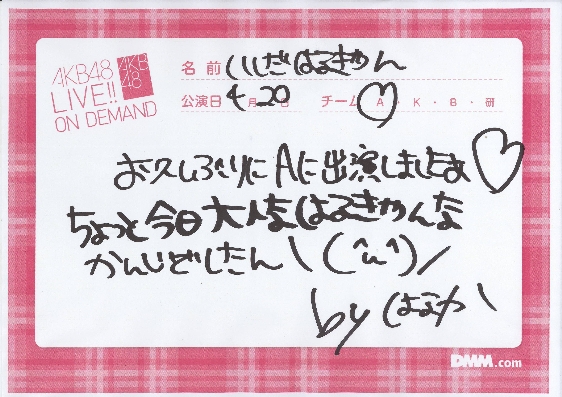 AKB48
LIVE!!
ON DEMAND
AKB
48
名前 いしだはるきゃん
公演日 4月20日 チーム A・K・B・研
お久しぶりにAに出演しましたよ♡
ちょっと今日大人なはるきゃんな
かんじどしたん\(^u^)/
by はるか
DMM.com